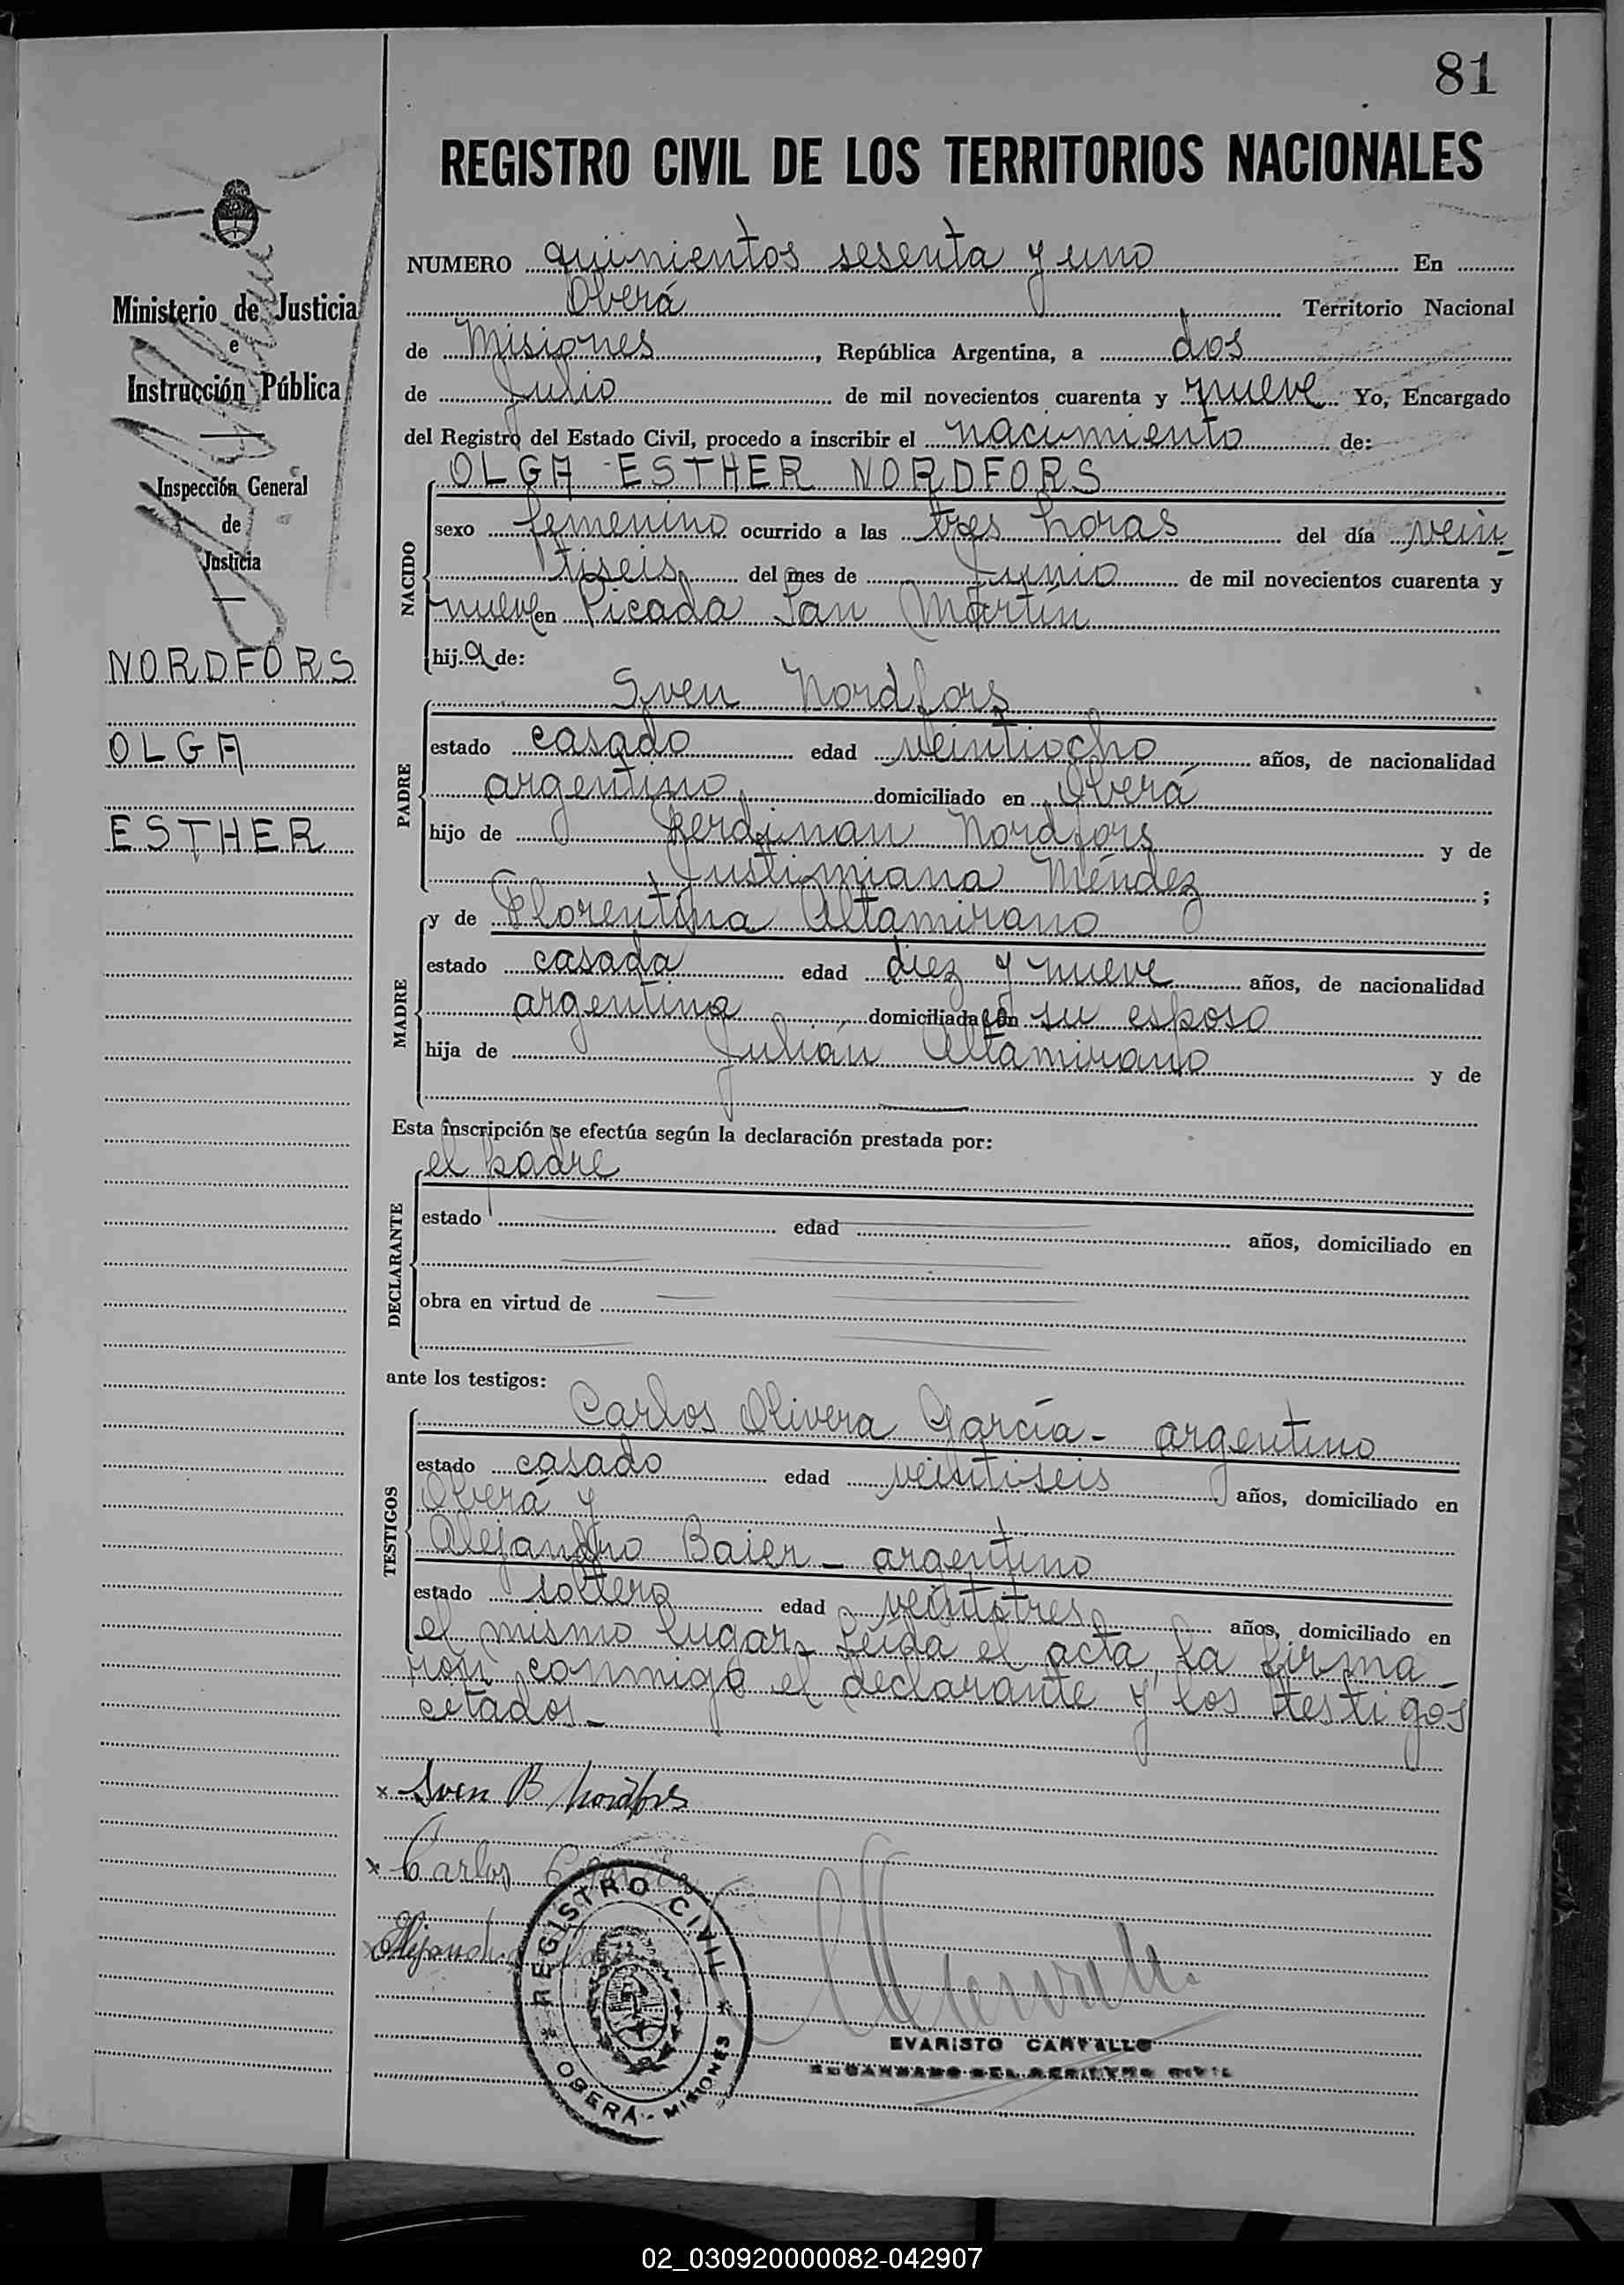 81
REGISTRO CIVIL DE LOS TERRITORIOS NACIONALES
Ministerio de Justicia
e
Instrucción Pública
Inspección General
de
Justicia
NORDFORS
OLGA
ESTHER
NUMERO quinientos sesenta y uno En
Oberá Territorio Nacional
de Misiones, República Argentina, a dos
de Julio de mil novecientos cuarenta y nueve Yo, Encargado
del Registro del Estado Civil, procedo a inscribir el nacimiento de:
OLGA ESTHER NORDFORS
NACIDO
sexo femenino ocurrido a las tres horas del día vein
tiseis del mes de Junio de mil novecientos cuarenta y
nueve en Picada San Martín
hija de:
Sven Nordfors
PADRE
estado casado edad veintiocho años, de nacionalidad
argentino domiciliado en Oberá
hijo de Ferdinan Nordfors y de
Justimiana Méndez ;
y de Florentina Altamirano
MADRE
estado casada edad diez y nueve años, de nacionalidad
argentina domiciliada con su esposo
hija de Julián Altamirano y de
Esta inscripción se efectúa según la declaración prestada por:
el padre
DECLARANTE
estado edad años, domiciliado en
obra en virtud de
ante los testigos:
Carlos Olivera García - argentino
TESTIGOS
estado casado edad veintiseis años, domiciliado en
Oberá y
Alejandro Baier - argentino
estado soltero edad veintitres años, domiciliado en
el mismo lugar - Leida el acta, la firma
ron conmigo el declarante y los testigos
citados -
x Sven B Nordfors
x Carlos
x Alejandro
REGISTRO CIVIL
OBERÁ - MISIONES
EVARISTO CARVALLO
ENCARGADO DEL REGISTRO CIVIL
02_030920000082-042907